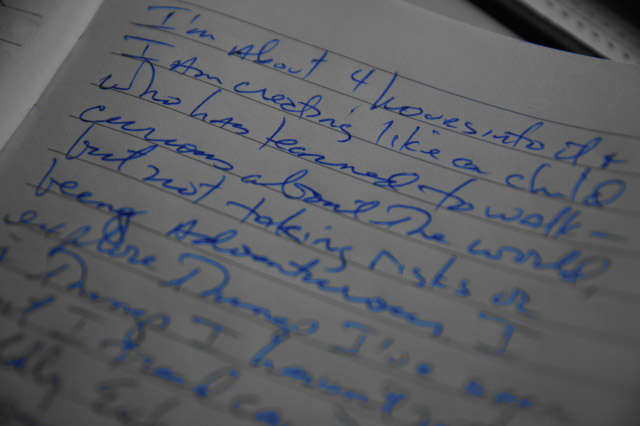 I'm About 4 hours into it &
I Am creating like a child
who has learned to walk –
curious about The world,
but not taking risks or
being Adventurous I
explore Things I've
Things I haven't
I